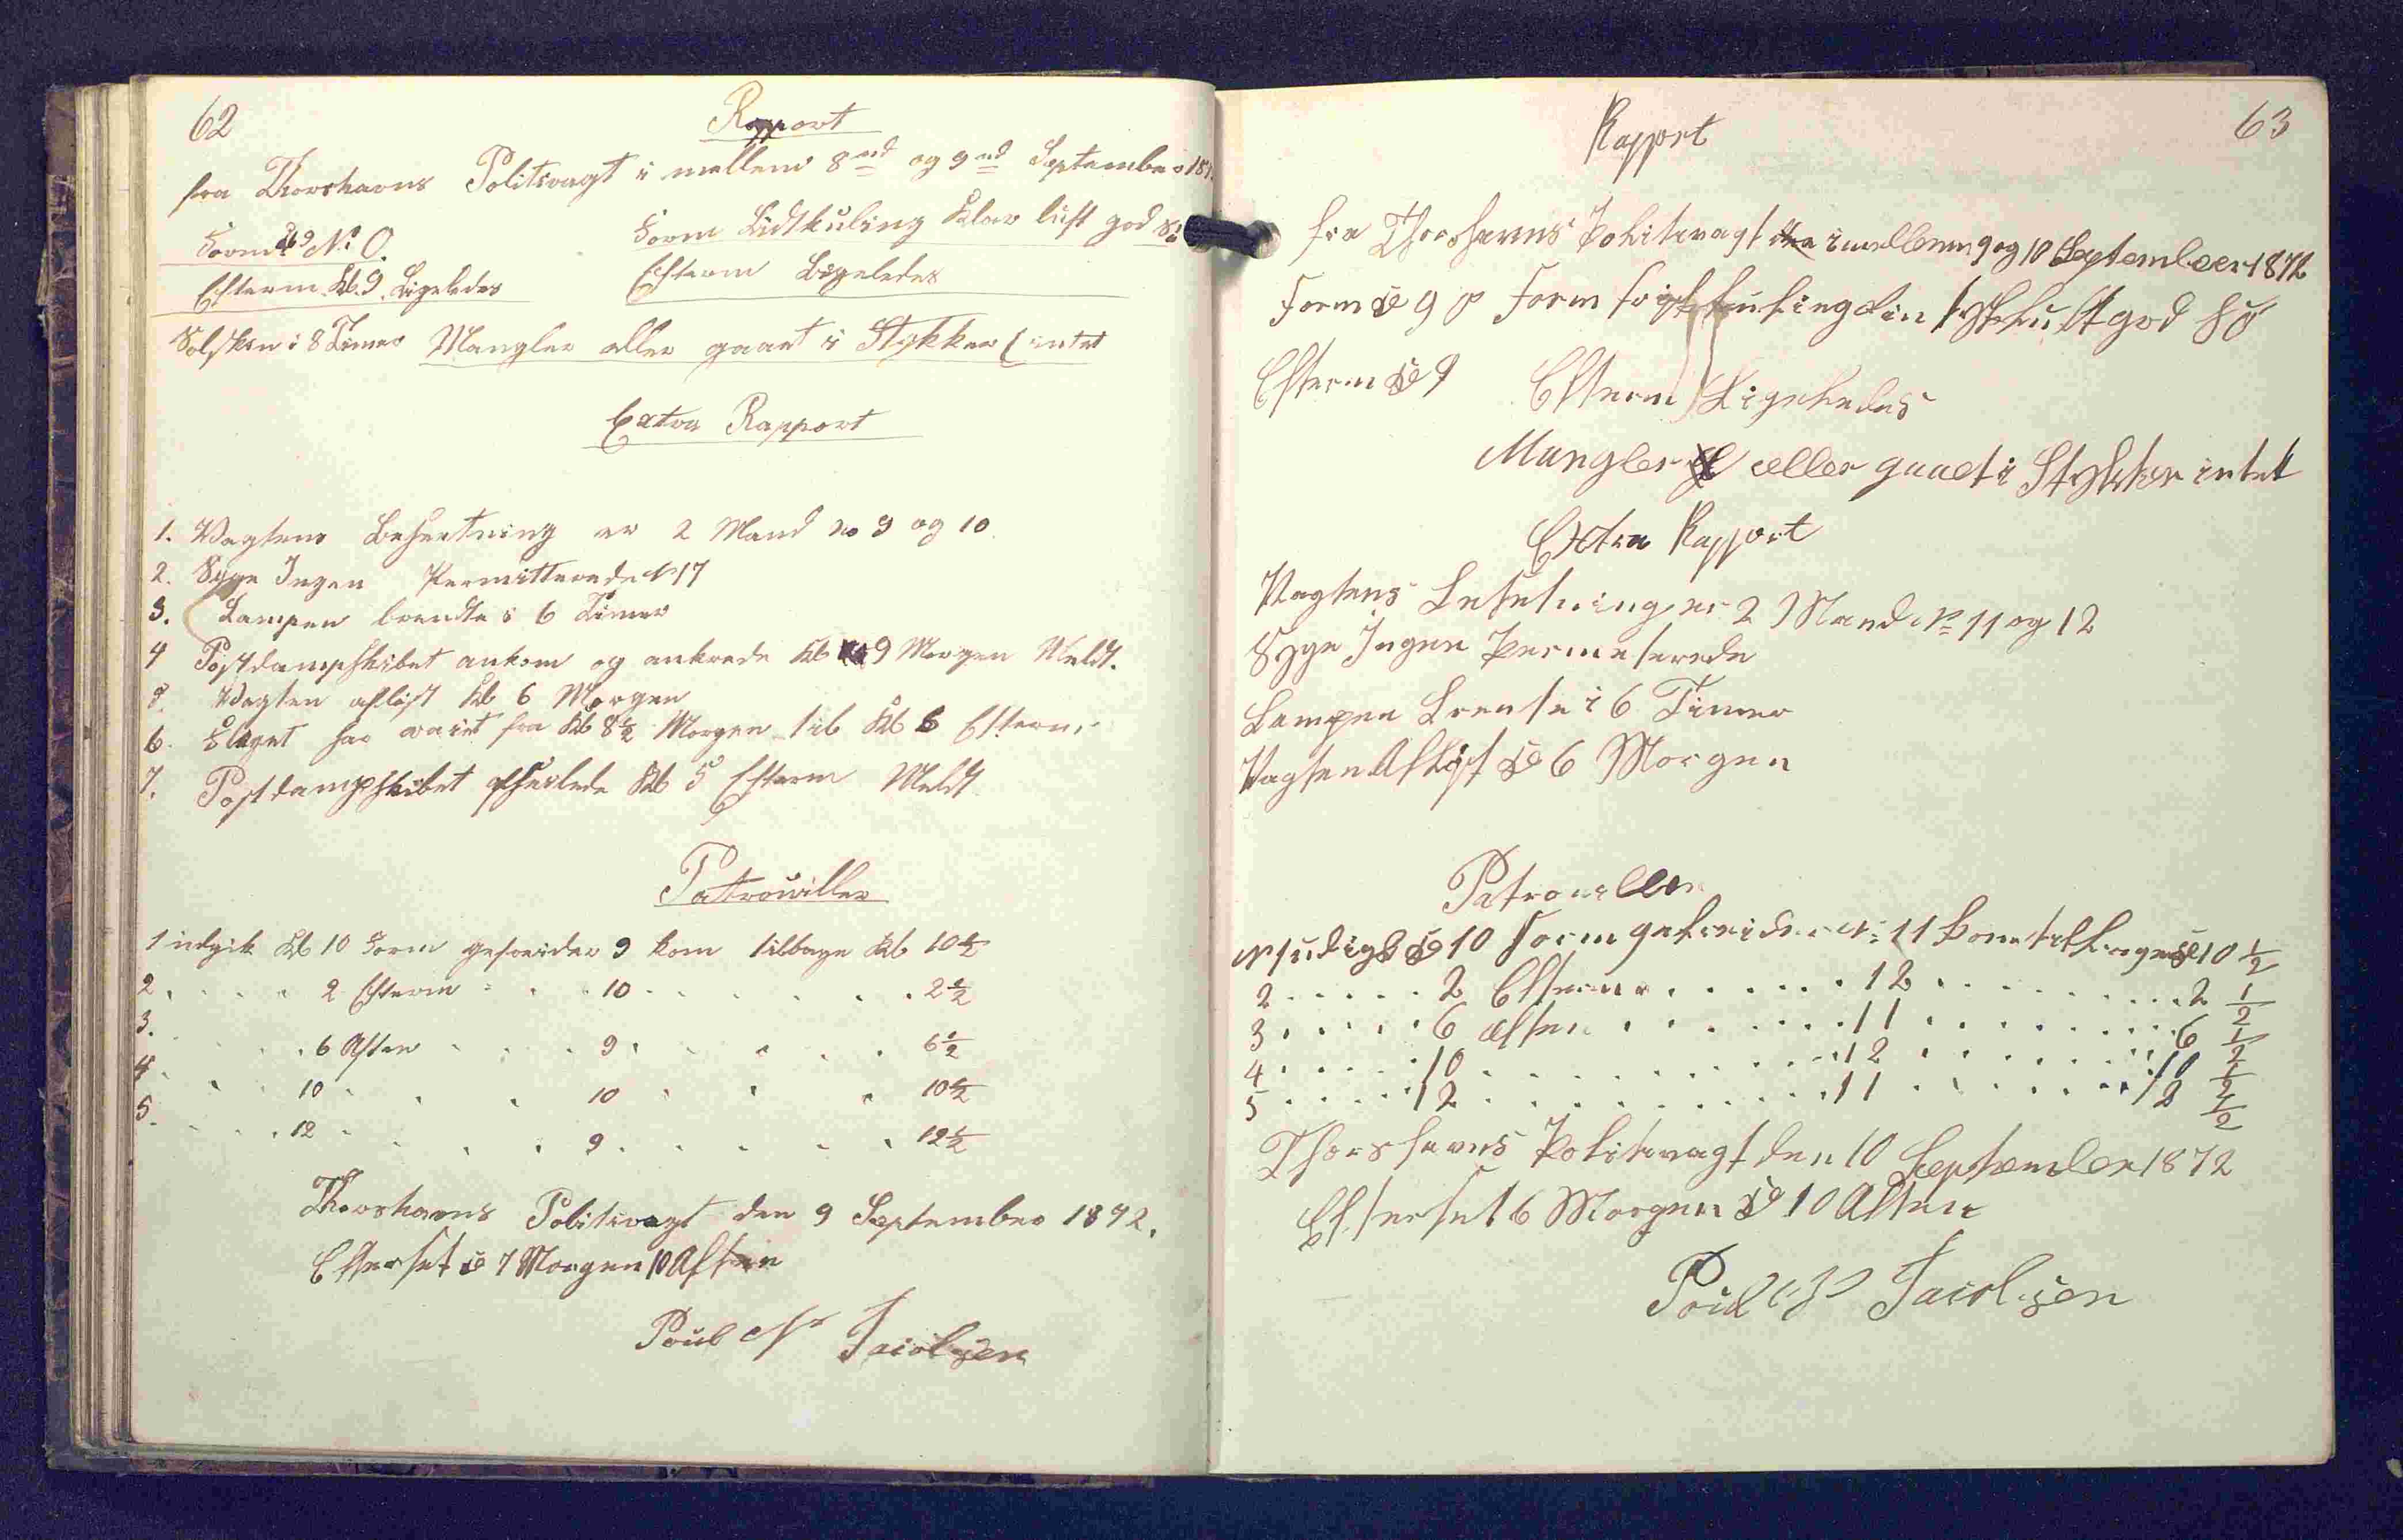 62
Rapport
fra Thorshavns Politivagt i mellem 8nd og 9nd September 187
Form Kl 9 N: O.
Form Lidtkuling Klar luft god Sö
Efterm. Kl. 9. Ligeledes
Efterm Ligeledes
Solsken i 8 Timer Mangler eller gaaet i Stykker intet
Extra Rapport
1. Vagtens Besætning er 2 Mand No 9 og 10
2. Syge Ingen Permitterede N 17
3. Lampen brendte i 6 Timer
4 Postdampskibet ankom og ankrede Kl 9 Morgen Meldt.
5. Vagten aflöst Kl 6 Morgen
6. Flaget har vaiet fra Kl 8½ Morgen til Kl 6 Efterm.
7. Postdampskibet afseilede Kl 5 Efterm Meldt
Patrouiller
1 udgik Kl 10 Form gefreider 9 kom tilbage Kl 10½
2 . . . . 2 Efterm . . . 10 . . . . . . 2½
3. . . . . 6 Aften . . . 9 . . . . . 6½
4 . . . . 10 . . . 10 . . . 10½
5. . . . . 12 . . . . 9 . . . . . 12½
Thorshavns Politivagt den 9 September 1872.
Efterset Kl 7 Morgen 10 Aften
Poul N Jacobsen
63
Rapport
fra Thorshavns Politivagt imellem 9 og 10 September 1872
Form Kl 9 Form frisk kuling tyk luft god Sö
Efterm Kl 9 Efterm Ligeledes
Mangler eller gaaet i Stykker intet
Extra Rapport
Vagtens Besetning er 2 Mand No 11 og 12
Syge Ingen Permeterede
Lampen Brente i 6 Timer
Vagten Aflöst Kl 6 Morgen
Patroueller
Kl 10 Form gefreider N: 11 kom tilbage Kl 10 ½
2 . . . . . 2 Efterm . . . . . 12 . . . . . . . . 2 ½
3 . . . . . 6 Aften . . . . . . 11 . . . . . . . . 6 ½
4 . . . . . 10 . . . . . . . . 12 . . . . . . . . 10 ½
5 . . . . . 12 . . . . . . . . 11 . . . . . . . . 12 ½
Thorshavns Politivagt den 10 September 1872
Efterset 6 Morgen Kl 10 Aften
Poul N Jacobsen